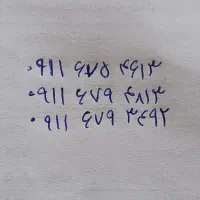 ۰۹۱۱ ۶۷۵ ۴۶۱۳
۰۹۱۱ ۶۷۹ ۴۸۱۳
۰۹۱۱ ۶۷۹ ۳۶۹۲